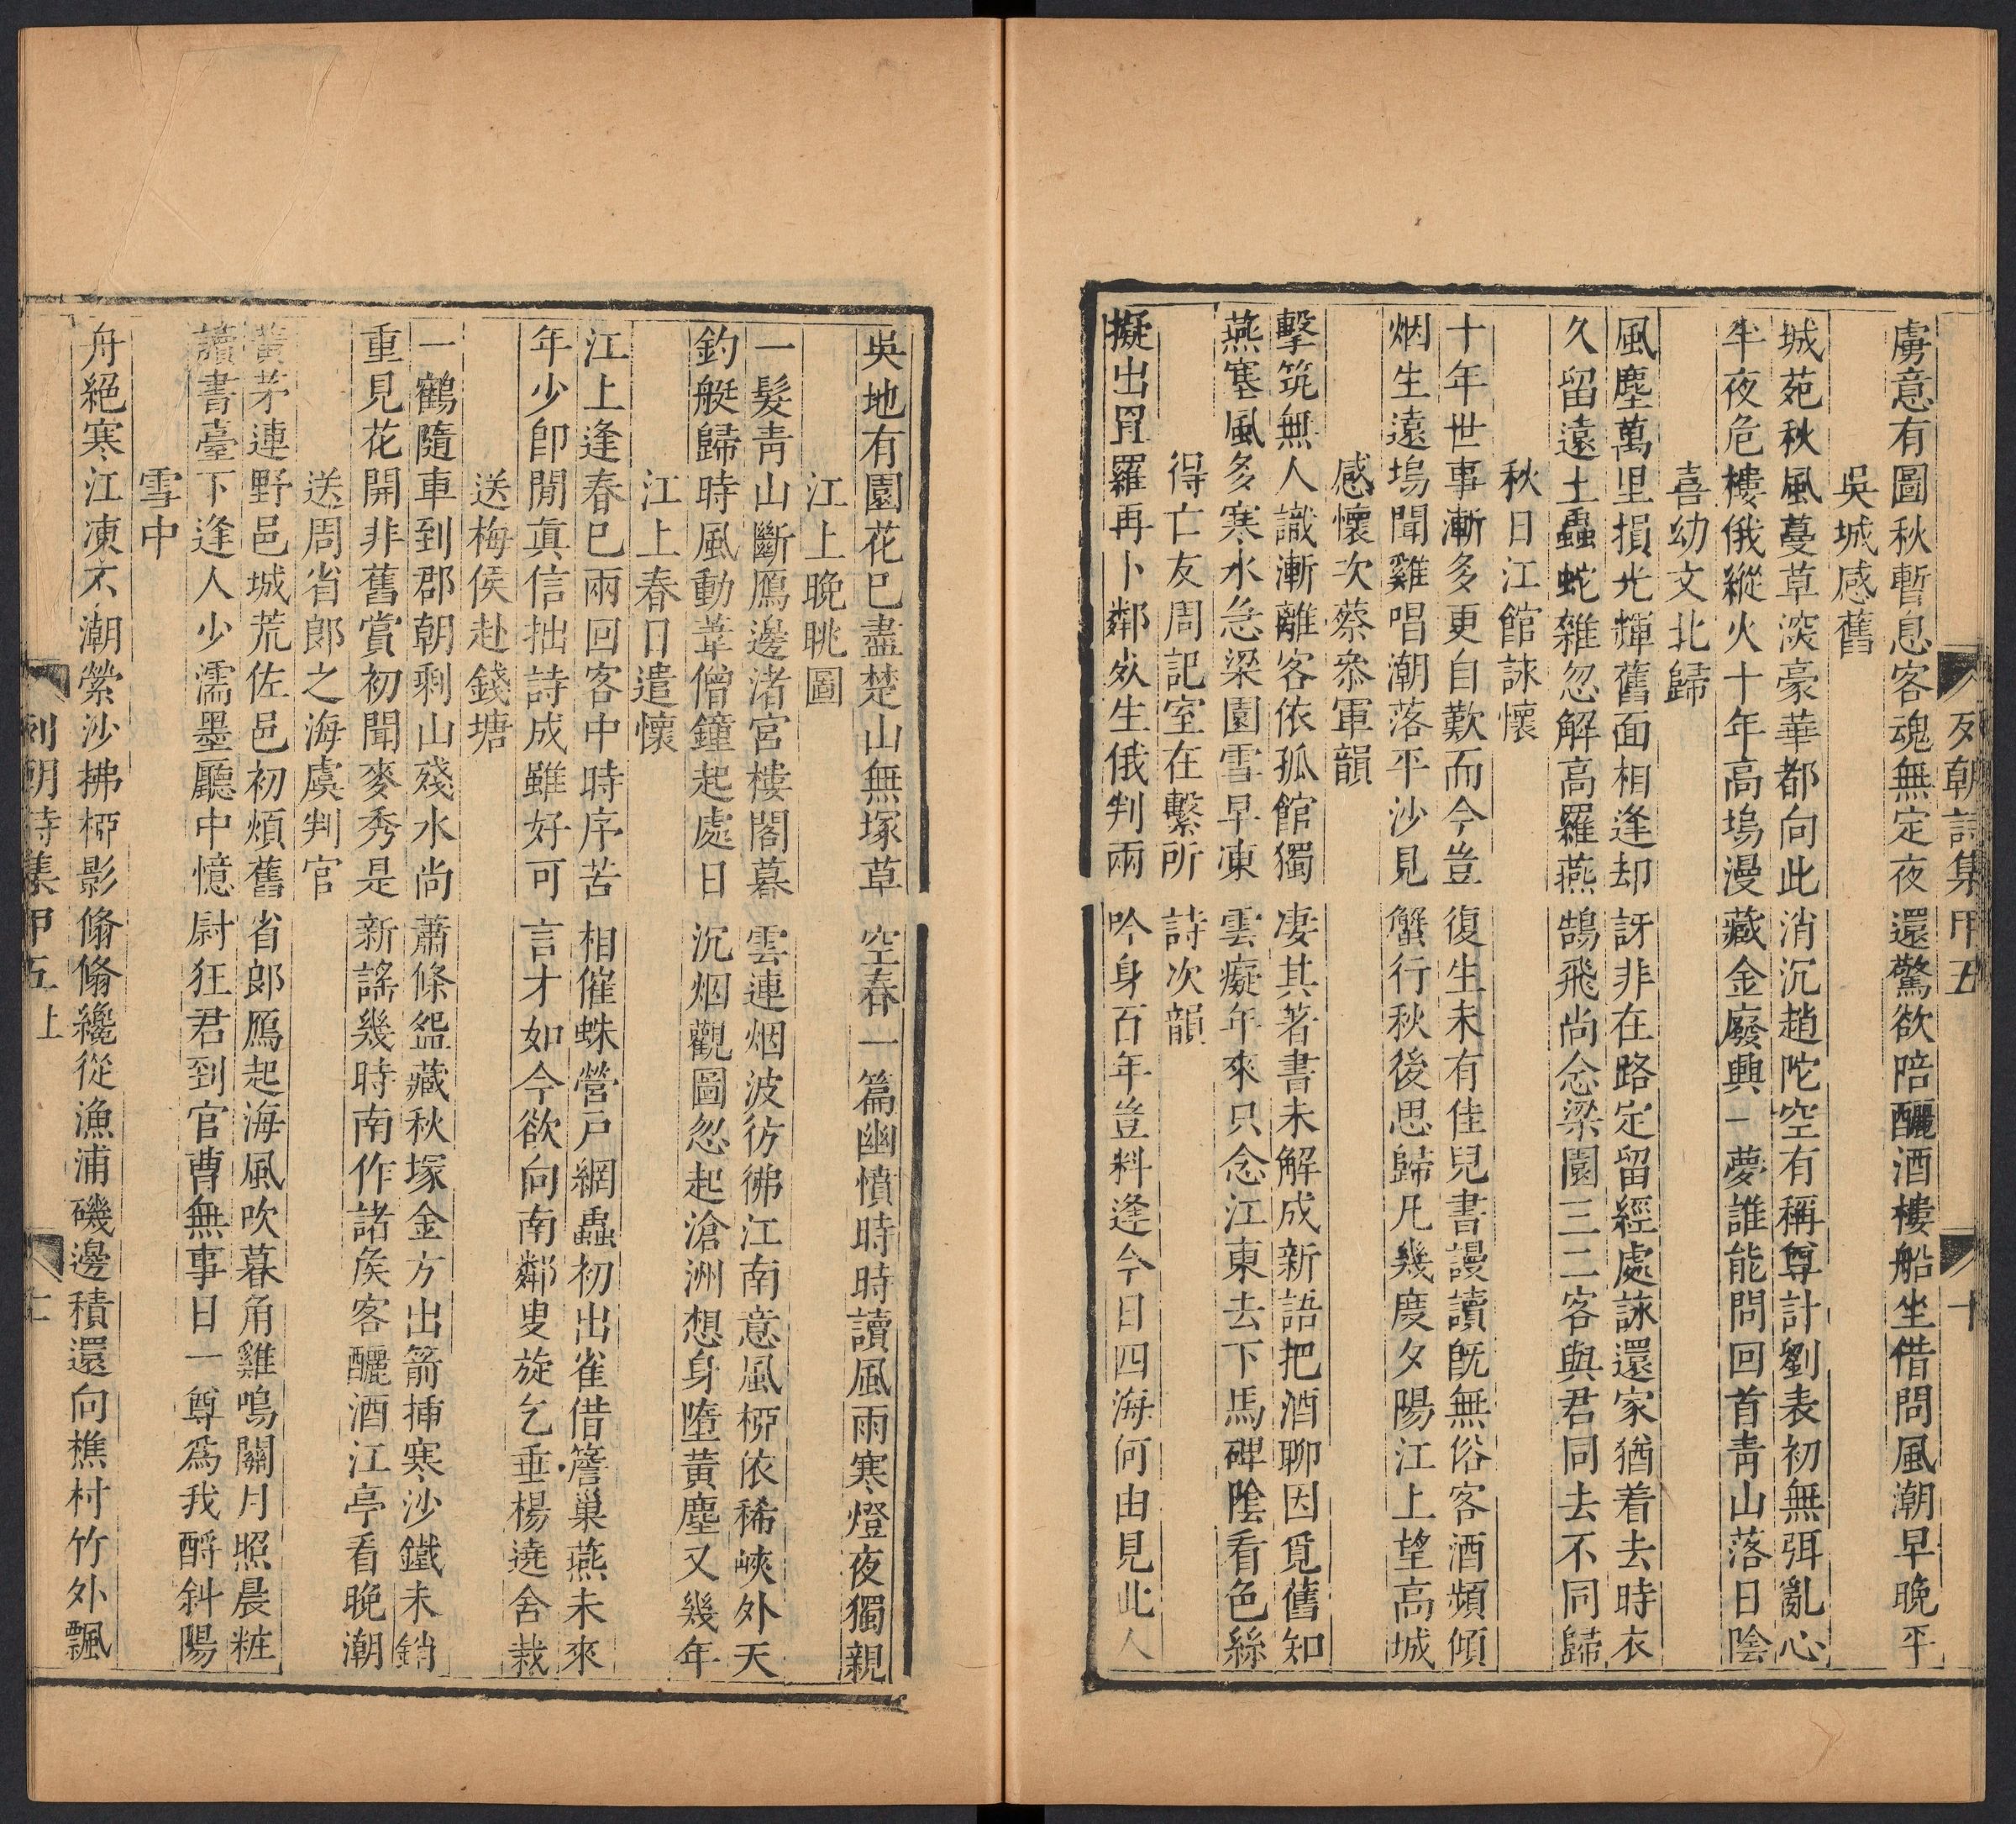 列朝詩集甲五 十
虜意有圖秋暫息客魂無定夜還驚欲陪釃酒樓船坐借問風潮早晚平
吳城感舊
城苑秋風蔓草深豪華都向此消沉趙陀空有稱尊計劉表初無弭亂心
半夜危樓俄縱火十年高塢漫藏金廢興一夢誰能問回首青山落日陰
喜幼文北歸
風塵萬里損光輝舊面相逢却訝非在路定留經處詠還家猶着去時衣
久留遠土蟲蛇雜忽解高羅燕鵠飛尚念梁園三二客與君同去不同歸
秋日江館詠懷
十年世事漸多更自歎而今豈復生未有佳兒書謾讀旣無俗客酒頻傾
烟生遠塢聞雞唱潮落平沙見蟹行秋後思歸凡幾度夕陽江上望高城
感懷次蔡叅軍韻
擊筑無人識漸離客依孤館獨淒其著書未解成新語把酒聊因覓舊知
燕塞風多寒水急梁園雪早凍雲癡年來只念江東去下馬碑陰看色絲
得亡友周記室在繫所詩次韻
擬出罥羅再卜鄰死生俄判兩吟身百年豈料逢今日四海何由見此人
吳地有園花已盡楚山無塚草空春一篇幽憤時時讀風雨寒燈夜獨親
江上晚眺圖
一髮青山斷鴈邊渚宮樓閣暮雲連烟波彷彿江南意風柳依稀峽外天
釣艇歸時風動葦僧鐘起處日沉烟觀圖忽起滄洲想身墮黃塵又幾年
江上春日遣懷
江上逢春已兩回客中時序苦相催蛛營戶網蟲初出雀借簷巢燕未來
年少卽閒眞信拙詩成雖好可言才如今欲向南鄰叟旋乞垂楊遶舍栽
送梅侯赴錢塘
一鶴隨車到郡朝剩山殘水尚蕭條盌藏秋塚金方出箭揷寒沙鐵未銷
重見花開非舊賞初聞麥秀是新謠幾時南作諸侯客釃酒江亭看晚潮
送周省郎之海虞判官
黃茅連野邑城荒佐邑初煩舊省郎鴈起海風吹暮角雞鳴關月照晨粧
讀書臺下逢人少濡墨廳中憶尉狂君到官曹無事日一尊爲我酹斜陽
雪中
舟絕寒江凍不潮縈沙拂柳影翛翛纔從漁浦磯邊積還向樵村竹外飄
列朝詩集甲五上